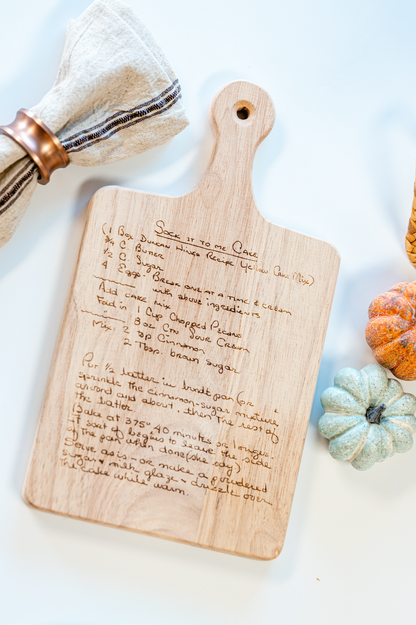 Sock it to me Cake
(1 Box Duncan Hines Recipe Yellow Cake Mix)
3/4 C. Butter
1/2 C. Sugar
4 Eggs - Break one at a time & cream
with above ingredients
Add cake mix
Fold in 1 Cup Chopped Pecans
8 oz Ctn Sour Cream
Mix: 2 tsp Cinnamon
2 Tbsp. brown sugar
Put 1/2 batter in bundt pan
sprinkle the cinnamon-sugar mixture
around and about, then the rest of
the batter.
Bake at 375° 40 minutes or longer
if sort of begins to leave the sides
of the pan when done
Serve as is, or make a powdered
sugar & milk glaze & drizzle over
the cake while warm.